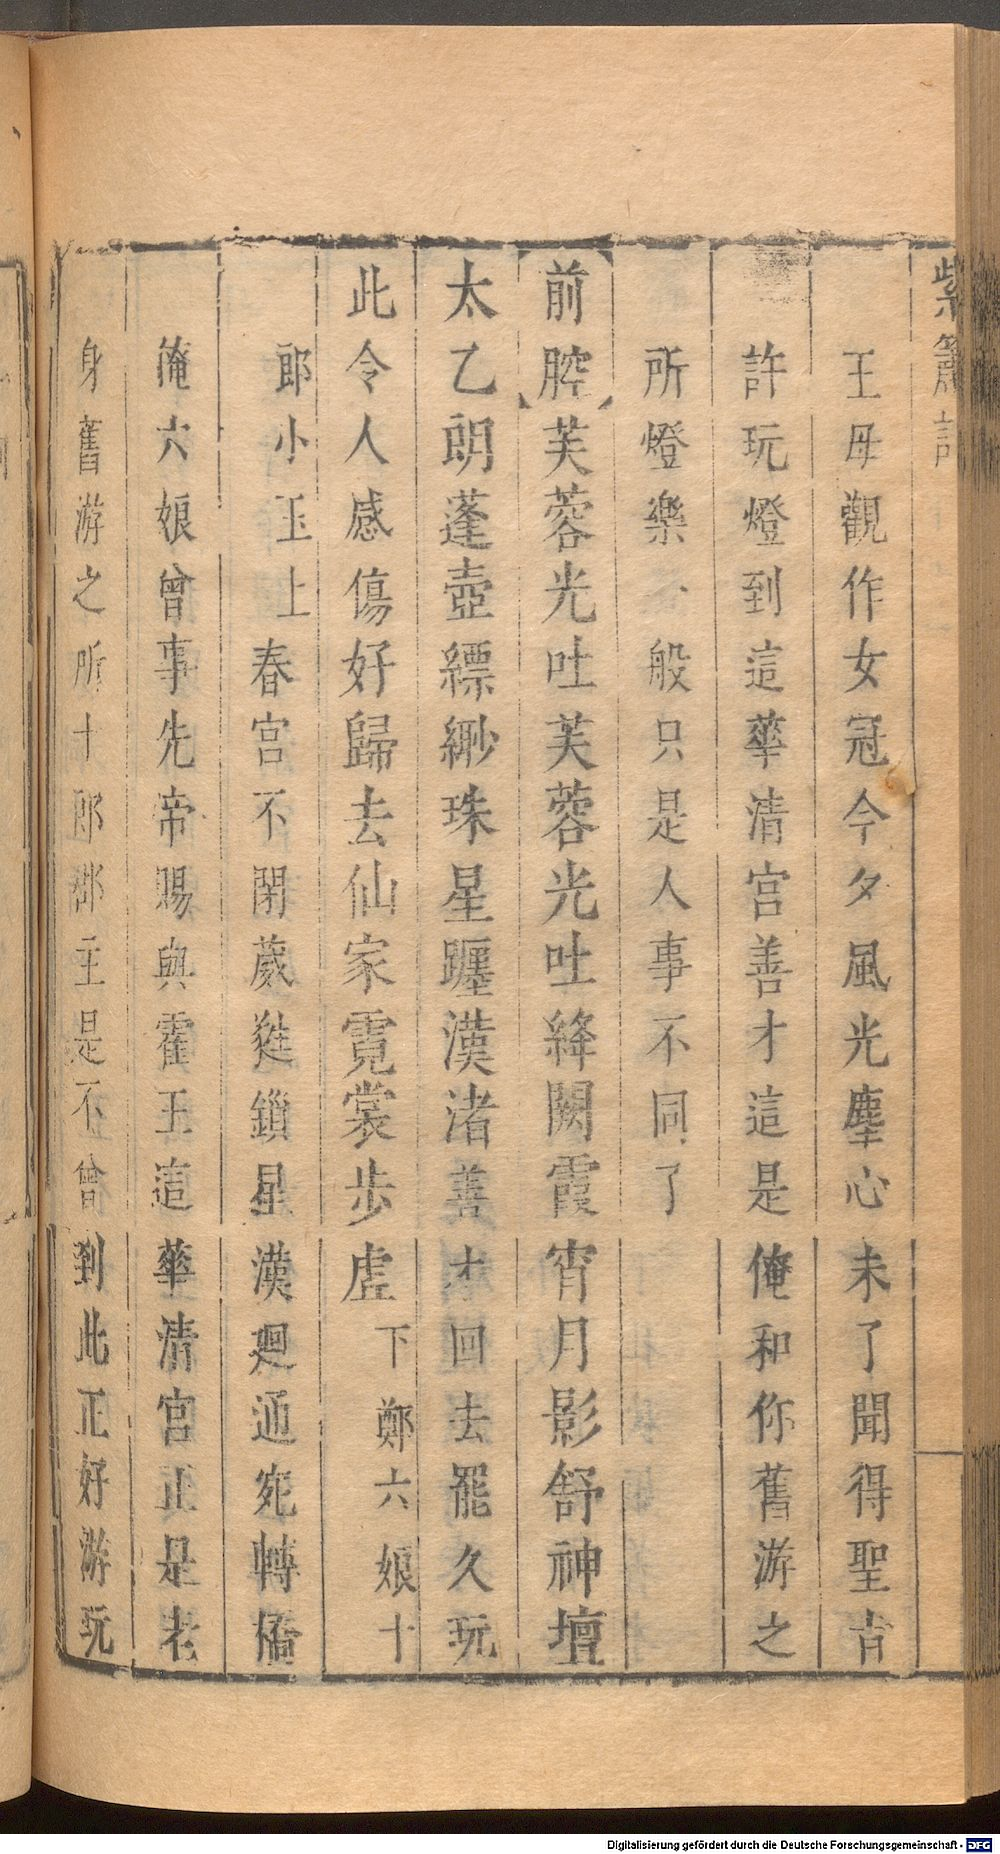 紫簫記
王母觀作女冠今夕風光塵心未了聞得聖旨
許玩燈到這華清宮善才這是俺和你舊游之
所燈樂一般只是人事不同了
前腔芙蓉光吐芙蓉光吐絳闕霞宵月影舒神壇
太乙朗蓬壺縹緲珠星躔漢渚善才回去罷久玩
此令人感傷好歸去仙家霓裳步虛下鄭六娘十
郎小玉上春宮不閉葳蕤鎖星漢廻通宛轉橋
俺六娘曾事先帝賜與霍王這華清宮正是老
身舊游之所十郎郡主是不曾到此正好游玩
Digitalisierung gefördert durch die Deutsche Forschungsgemeinschaft - DFG